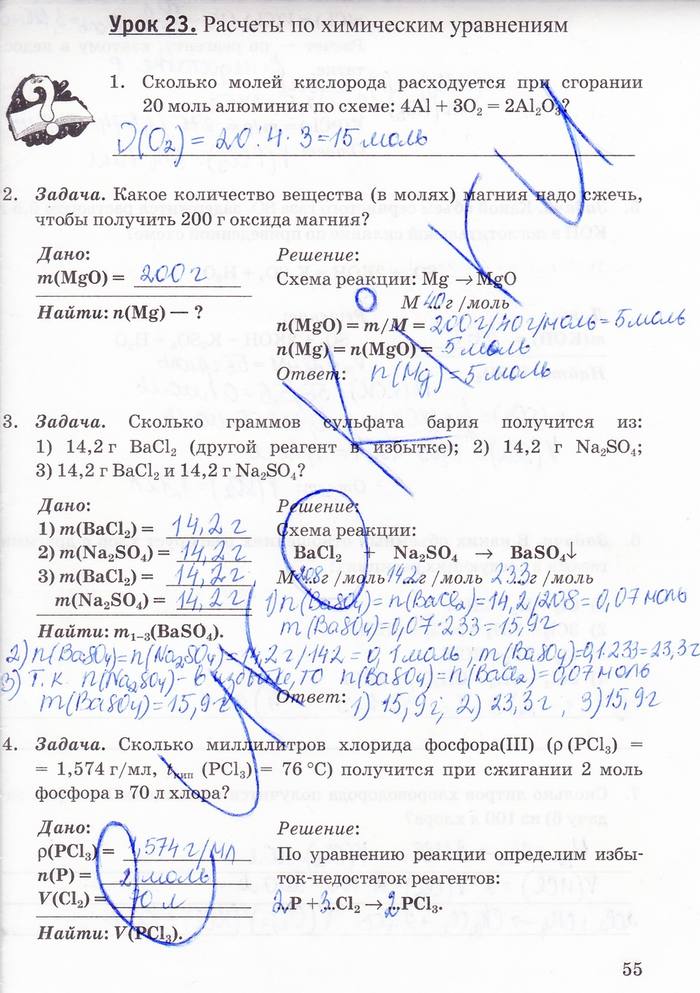 Урок 23. Расчеты по химическим уравнениям
1. Сколько молей кислорода расходуется при сгорании
20 моль алюминия по схеме: 4Al + 3O₂ = 2Al₂O₃?
ν(O₂) = 20:4·3=15 моль
2. Задача. Какое количество вещества (в молях) магния надо сжечь,
чтобы получить 200 г оксида магния?
Дано:
m(MgO) = 200 г
Найти: n(Mg) — ?
Решение:
Схема реакции: Mg → MgO
M 40 г/моль
n(MgO) = m/M = 200г/40г/моль=5моль
n(Mg) = n(MgO) = 5моль
Ответ: n(Mg)=5моль
3. Задача. Сколько граммов сульфата бария получится из:
1) 14,2 г BaCl₂ (другой реагент в избытке); 2) 14,2 г Na₂SO₄;
3) 14,2 г BaCl₂ и 14,2 г Na₂SO₄?
Дано:
1) m(BaCl₂) = 14,2 г
2) m(Na₂SO₄) = 14,2 г
3) m(BaCl₂) = 14,2 г
m(Na₂SO₄) = 14,2 г
Найти: m₁₋₃(BaSO₄).
Решение:
Схема реакции:
BaCl₂ + Na₂SO₄ → BaSO₄↓
M 208 г/моль 142 г/моль 233 г/моль
1) n(BaSO₄)=n(BaCl₂)=14,2/208=0,07 моль
m(BaSO₄)=0,07·233=15,9г
2) n(BaSO₄)=n(Na₂SO₄)=14,2 г/142=0,1моль, m(BaSO₄)=0,1·233=23,3г
3) Т.к. n(Na₂SO₄)- в избытке, то n(BaSO₄)=n(BaCl₂)=0,07моль
m(BaSO₄)=15,9г
Ответ: 1) 15,9г; 2) 23,3г; 3) 15,9г
4. Задача. Сколько миллилитров хлорида фосфора(III) (ρ (PCl₃) =
= 1,574 г/мл, tкип (PCl₃) = 76 °C) получится при сжигании 2 моль
фосфора в 70 л хлора?
Дано:
ρ(PCl₃) = 1,574 г/мл
n(P) = 2 моль
V(Cl₂) = 70 л
Найти: V(PCl₃).
Решение:
По уравнению реакции определим избы-
ток-недостаток реагентов:
2P + 3Cl₂ → 2PCl₃.
55